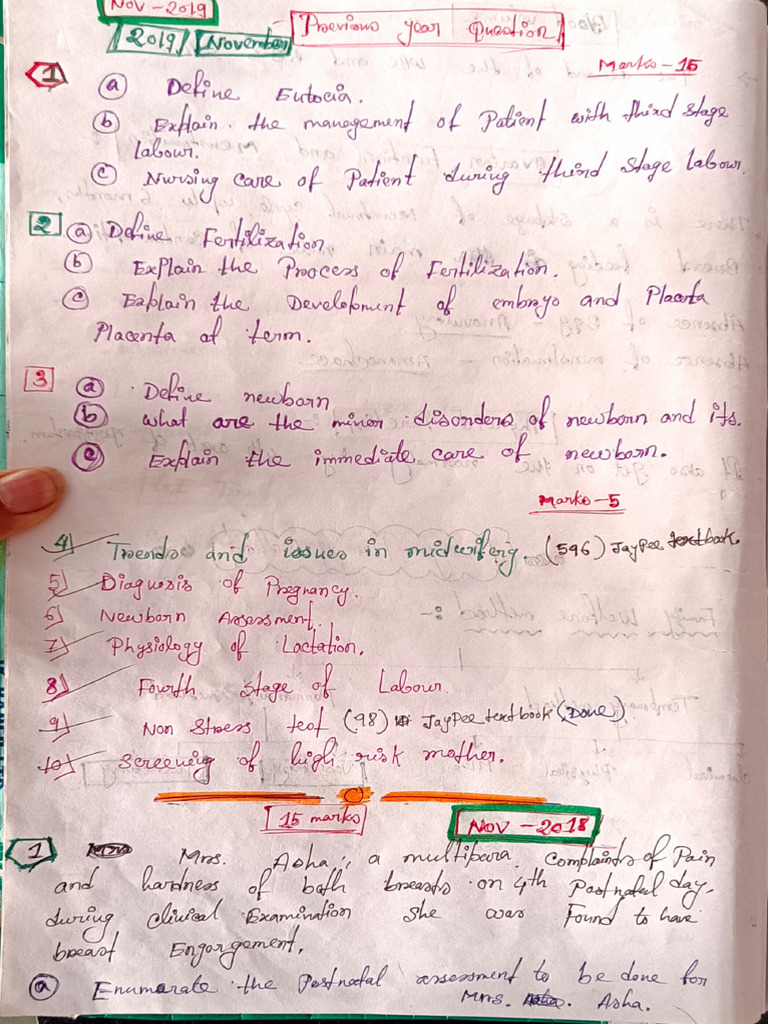 Nov - 2019
2019 November Previous year Question
Marks - 15
1 a Define Eutocia.
b Explain the management of Patient with third stage
labour.
c Nursing care of Patient during third stage labour.
2 a Define Fertilization
b Explain the Process of Fertilization.
c Explain the Development of embryo and Placenta
Placenta at term.
3 a Define newborn
b what are the minor disorders of newborn and its.
c Explain the immediate care of newborn.
Marks - 5
4) Trends and issues in midwifery. (596) JayPee textbook.
5) Diagnosis of Pregnancy.
6) Newborn Assessment.
7) Physiology of Lactation.
8) Fourth stage of Labour.
9) Non Stress test (98) JayPee textbook (Done)
10) Screening of high risk mother.
15 marks Nov - 2018
1 Mrs. Asha, a multipara, complaints of Pain
and hardness of both breasts on 4th Postnatal day,
during clinical Examination she was Found to have
breast Engorgement.
a Enumarate the Postnatal assessment to be done for
Mrs. Asha.